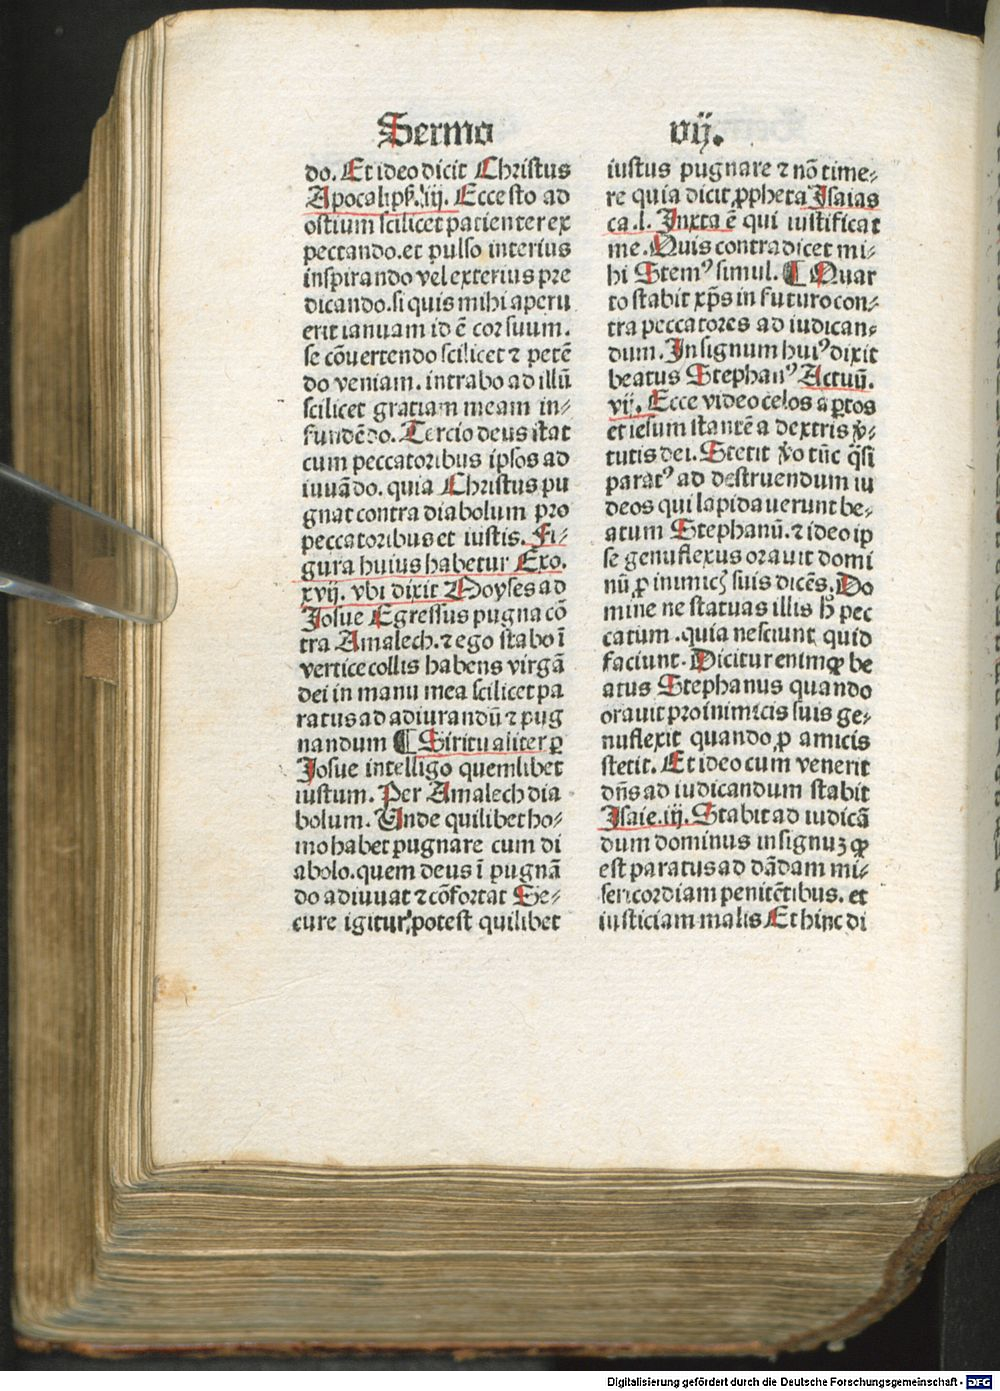 Sermo vij.
do. Et ideo dicit Christus
Apocalips̄. iij. Ecce sto ad
ostium scilicet patienter ex
pectando. et pulso interius
inspirando vel exterius pre
dicando. si quis mihi aperu
erit ianuam id ē cor suum.
se cōuertendo scilicet ⁊ petē
do veniam. intrabo ad illū
scilicet gratiam meam in⸗
fundēdo. Tercio deus stat
cum peccatoribus ipsos ad
iuuādo. quia Christus pu
gnat contra diabolum pro
peccatoribus et iustis. Fi⸗
gura huius habetur Exo.
xvij. vbi dixit Moyses ad
Josue Egressus pugna cō
tra Amalech. ⁊ ego stabo ī
vertice collis habens virgā
dei in manu mea scilicet pa
ratus ad adiurandū ⁊ pug
nandum ¶ Siritualiter ꝑ
Josue intelligo quemlibet
iustum. Per Amalech dia
bolum. Unde quilibet ho⸗
mo habet pugnare cum di
abolo. quem deus ī pugnā
do adiuuat ⁊ cōfortat Se⸗
cure igitur potest quilibet
iustus pugnare ⁊ nō time⸗
re quia dicit ꝓpheta Isaias
ca. l. Juxta ē qui iustificat
me. Quis contradicet mi⸗
hi Stemꝰ simul. ¶ Quar
to stabit xp̄s in futuro con⸗
tra peccatores ad iudican⸗
dum. In signum huiꝰ dixit
beatus Stephanꝰ Actuū.
vij. Ecce video celos aꝑtos
et iesum stantē a dextris v̄⸗
tutis dei. Stetit v̄o tūc q̄si
paratꝰ ad destruendum iu
deos qui lapidauerunt be⸗
atum Stephanū. ⁊ ideo ip
se genuflexus orauit domi
nū ꝓ inimicꝭ suis dicēs. Do
mine ne statuas illis h̄ pec
catum. quia nesciunt quid
faciunt. Dicitur enim ꝙ be
atus Stephanus quando
orauit pro inimicis suis ge⸗
nuflexit quando ꝓ amicis
stetit. Et ideo cum venerit
dn̄s ad iudicandum stabit
Isaie. iij. Stabit ad iudicā
dum dominus in signuꝫ ꝙ
est paratus ad dādam mi⸗
sericordiam penitētibus. et
iusticiam malis Et hinc di
Digitalisierung gefördert durch die Deutsche Forschungsgemeinschaft - DFG